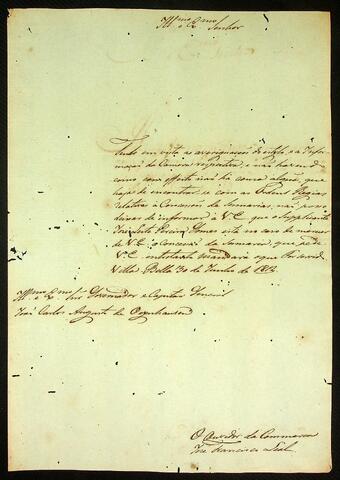 Ill.mo e Ex.mo Senhor
Tendo em vista as averiguações do estylo, e a Infor
mação da Camera respectiva, e não havend
como com effeito não ha cousa alguã, que
haja de encontrar-se com as Ordens Regias
relativas a Concessão de Sesmarias, não posso
deixar de informar a V.E. que o Supplicante
José Pereira Gomes está no caso de merecer
de V.E. a Concessão da Sesmaria, que pede
V.E. entretanto mandará o que for servido
Villa Bella 30 de Junho de 1812.
Ill.mo e Ex.mo Snr Governador e Capitão General
João Carlos Augusto de Oeynhausen
O Ouvidor da Commarca
José Francisco Leal